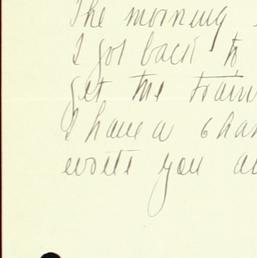 The morning
I got back to
get the train
I have a chan
write you a